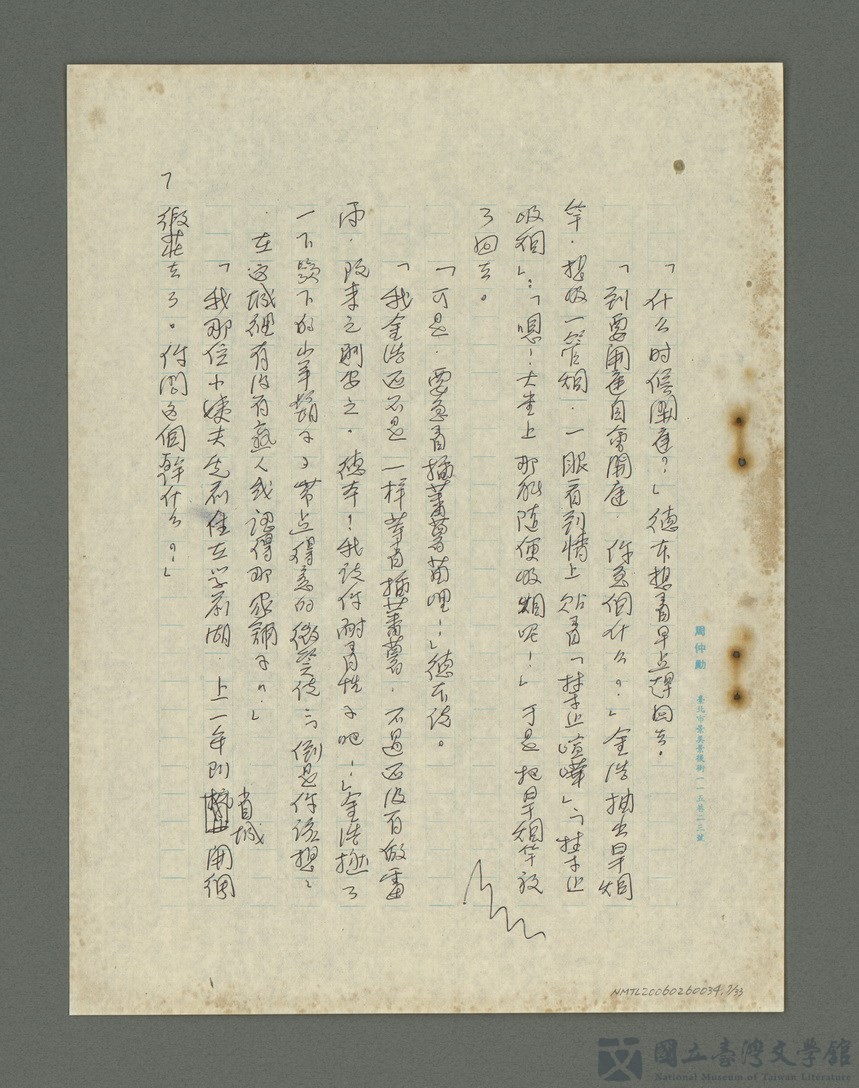 「什么时候開庭？」德本想着早点趕回去。
「到要開庭自會開庭．你急個什么？」金浩抽出旱烟
竿．想吸一管烟．一眼看到墻上貼着「禁止喧嘩」、「禁止
吸烟」：「嗯！大堂上那能随便吸烟呢！」于是把旱烟竿放
了回去。
「可是．要急着插蕃薯苗哩！」德本説。
「我金浩还不是一样等着插蕃薯．不過还没有做雷
雨．既来之則安之。德本！我説你耐着性子吧！」金浩撚了
一下頦下的山羊鬍子，帶点得意的微笑說：「倒是你該想：
在这城裡有没有熟人或認得那家舖子？」
「我那位小姨夫先前住在学前湖．上一年到省城開綢
緞莊去了。你問这個幹什么？」
7
周仲勳
臺北市景美景後街一一三巷二三號
NMTL20060260034, 7/33
國立臺灣文學館
National Museum of Taiwan Literature